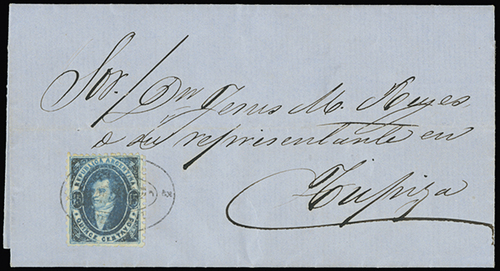 Sor. / Dn Jenus M. Reyes
o su representante en
Tupiza
REPUBLICA ARGENTINA
15 15
QUINCE CENTAVOS